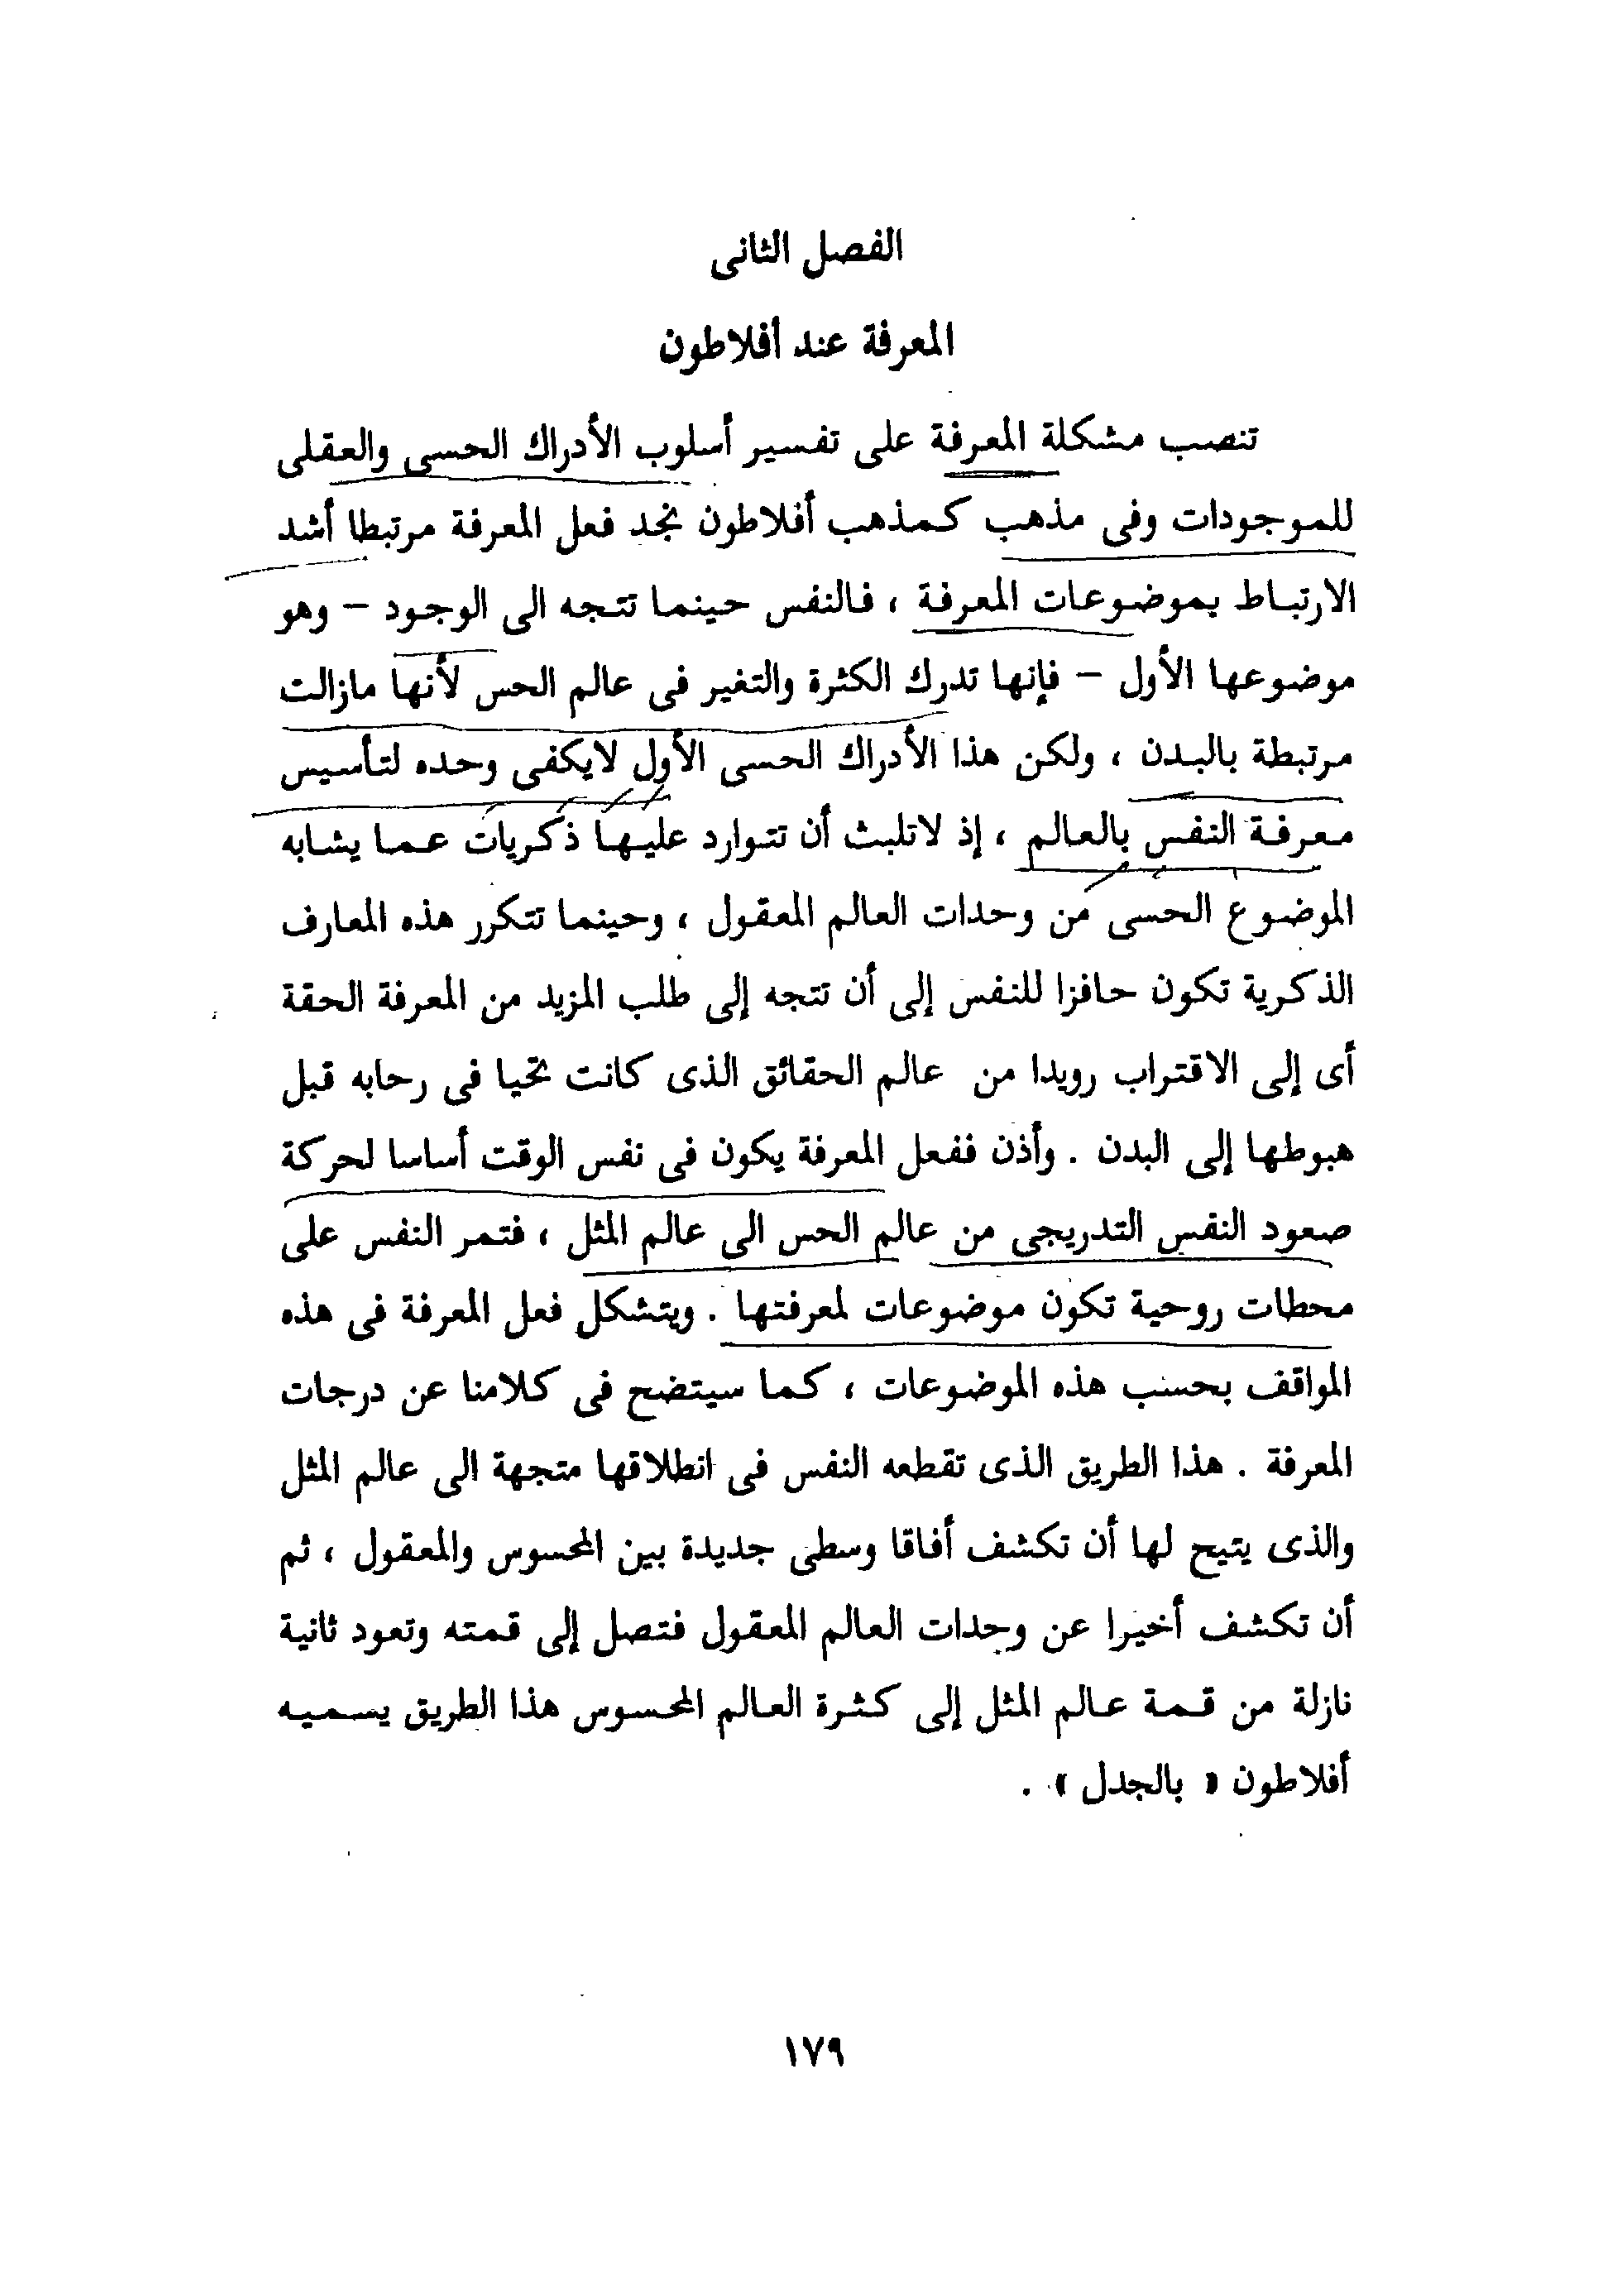 الفصل الثانى
المعرفة عند أفلاطون
تنصب مشكلة المعرفة على تفسير أسلوب الأدراك الحسى والعقلى
للموجودات وفى مذهب كمذهب أفلاطون نجد فعل المعرفة مرتبطا أشد
الارتباط بموضوعات المعرفة ، فالنفس حينما تتجه الى الوجود – وهو
موضوعها الأول – فإنها تدرك الكثرة والتغير فى عالم الحس لأنها مازالت
مرتبطة بالبدن ، ولكن هذا الأدراك الحسى الأول لايكفى وحده لتأسيس
معرفة النفس بالعالم ، إذ لاتلبث أن تتوارد عليها ذكريات عما يشابه
الموضوع الحسى من وحدات العالم المعقول ، وحينما تتكرر هذه المعارف
الذكرية تكون حافزا للنفس إلى أن تتجه إلى طلب المزيد من المعرفة الحقة
أى إلى الاقتراب رويدا من عالم الحقائق الذى كانت تحيا فى رحابه قبل
هبوطها إلى البدن . وأذن ففعل المعرفة يكون فى نفس الوقت أساسا لحركة
صعود النفس التدريجى من عالم الحس الى عالم المثل ، فتمر النفس على
محطات روحية تكون موضوعات لمعرفتها . ويتشكل فعل المعرفة فى هذه
المواقف بحسب هذه الموضوعات ، كما سيتضح فى كلامنا عن درجات
المعرفة . هذا الطريق الذى تقطعه النفس فى انطلاقها متجهة الى عالم المثل
والذى يتيح لها أن تكشف أفاقا وسطى جديدة بين المحسوس والمعقول ، ثم
أن تكشف أخيرا عن وحدات العالم المعقول فتصل إلى قمته وتعود ثانية
نازلة من قمة عالم المثل إلى كثرة العالم المحسوس هذا الطريق يسميه
أفلاطون « بالجدل » .
١٧٩